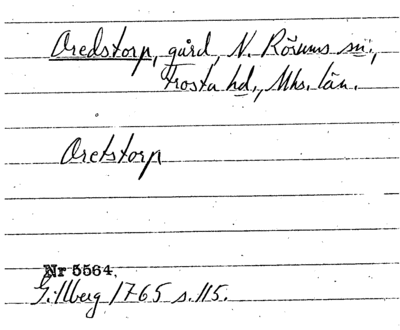 Oredstorp, gård, N. Rörums sn.,
Frosta hd., Mhs. län.
Oretstorp
Nr 5564.
Gillberg 1765 s. 115.